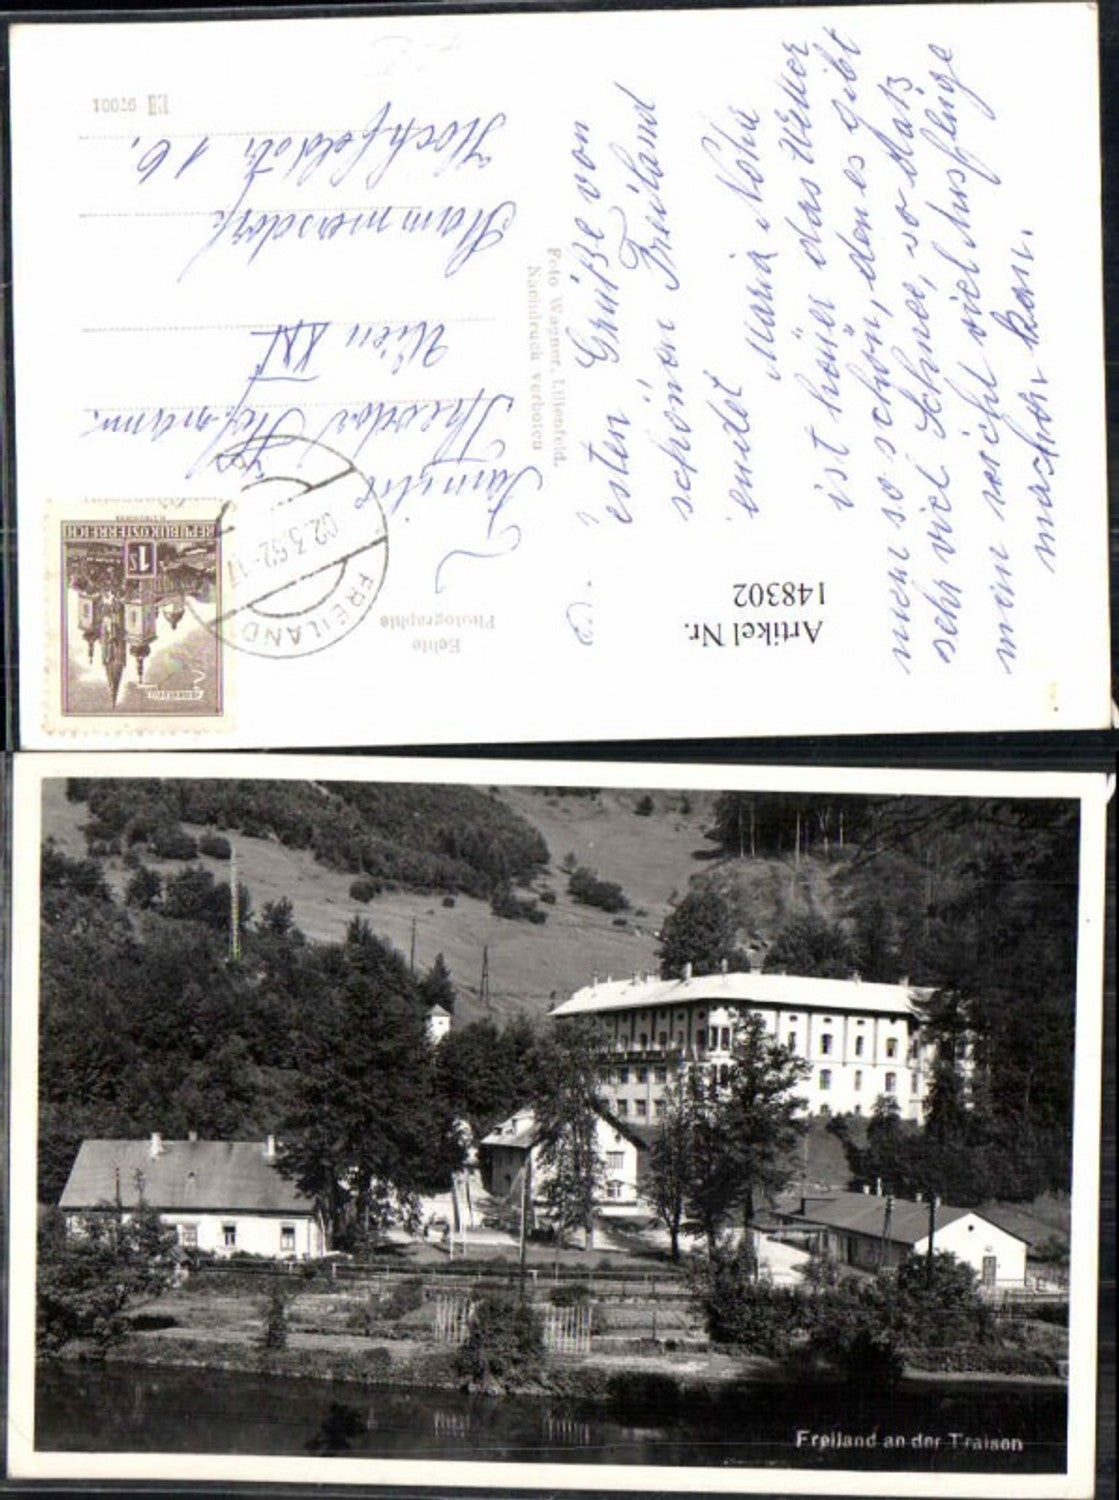 97001
Echte
Photographie
FREILAND
02.3.62-17
REPUBLIK ÖSTERREICH
1 S
Familie
Theodor
Wien XXI
Stammersdorf
Hochfeldstr. 16.
Foto Wagner, Lilienfeld.
Nachdruck verboten
Artikel Nr.
148302
esten Grüße von
schönen Freiland
sendet Maria
ist heuer das Wetter
nicht so schön, den es gibt
sehr viel Schnee, so daß
men nicht viel Ausflüge
machen kan.
Freiland an der Traisen